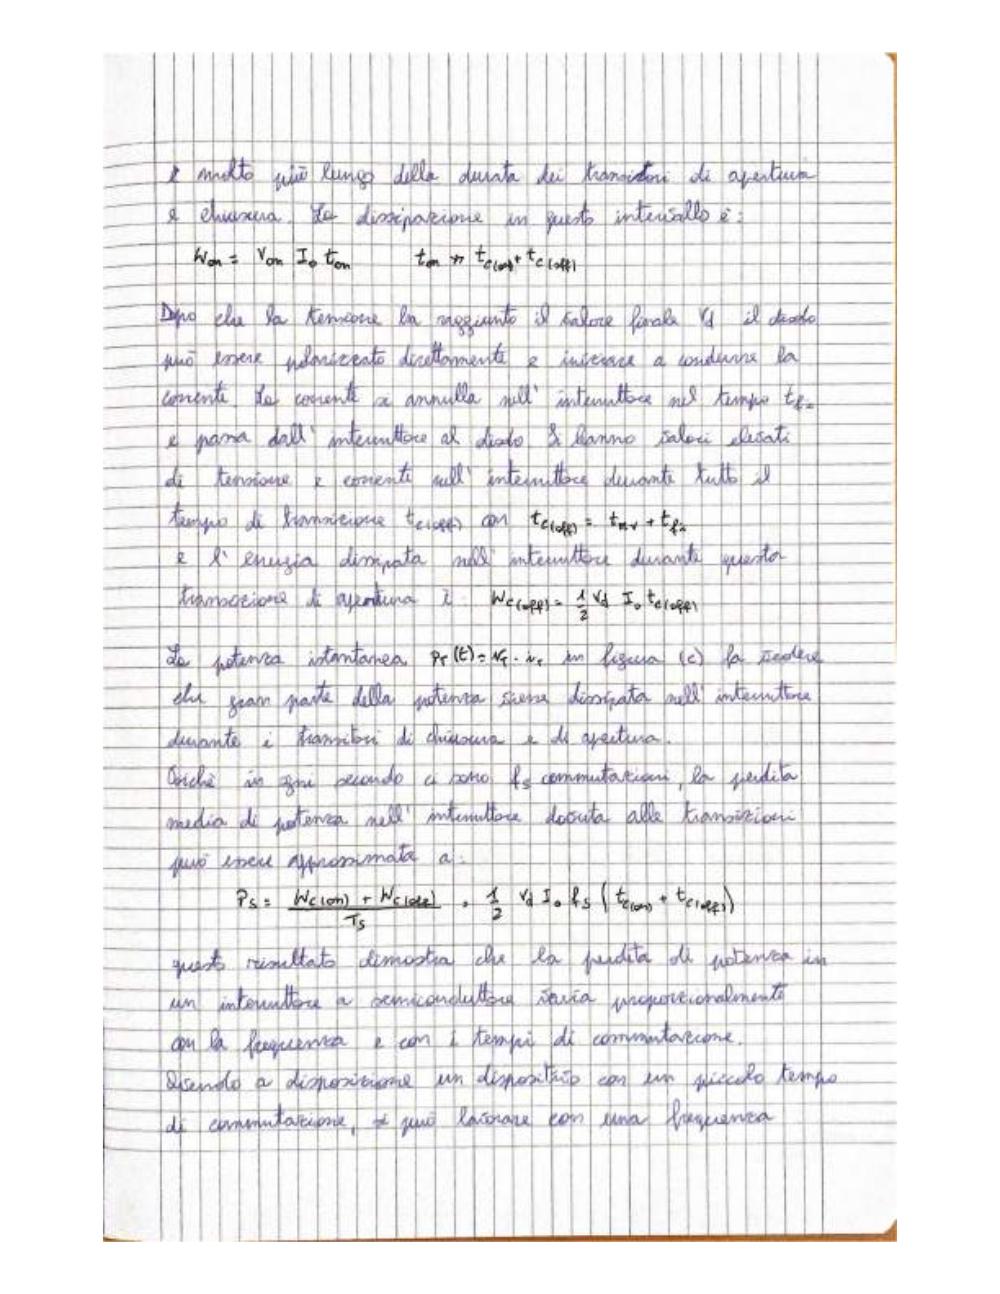 è molto più lungo della durata dei transitori di apertura
e chiusura. La dissipazione in questo intervallo è:
Won = Von Io ton ton >> tc(on) + tc(off)
Dopo che la tensione ha raggiunto il valore finale Vd il diodo
può essere polarizzato direttamente e iniziare a condurre la
corrente. La corrente si annulla nell' interruttore nel tempo tfi
e passa dall' interruttore al diodo. Si hanno valori elevati
di tensione e correnti nell' interruttore durante tutto il
tempo di transizione tc(off) con tc(off) = trv + tfi
e l' energia dissipata nell' interruttore durante questa
transizione di apertura è: Wc(off) = 1/2 Vd Io tc(off)
La potenza istantanea PT(t) = vT · iT in figura (c) fa vedere
che gran parte della potenza viene dissipata nell' interruttore
durante i transitori di chiusura e di apertura.
Poiché in ogni secondo ci sono fs commutazioni, la perdita
media di potenza nell' interruttore dovuta alle transizioni
può essere approssimata a:
Ps = Wc(on) + Wc(off) / Ts = 1/2 Vd Io fs (tc(on) + tc(off))
questo risultato dimostra che la perdita di potenza in
un interruttore a semiconduttore varia proporzionalmente
con la frequenza e con i tempi di commutazione.
Avendo a disposizione un dispositivo con un piccolo tempo
di commutazione, si può lavorare con una frequenza